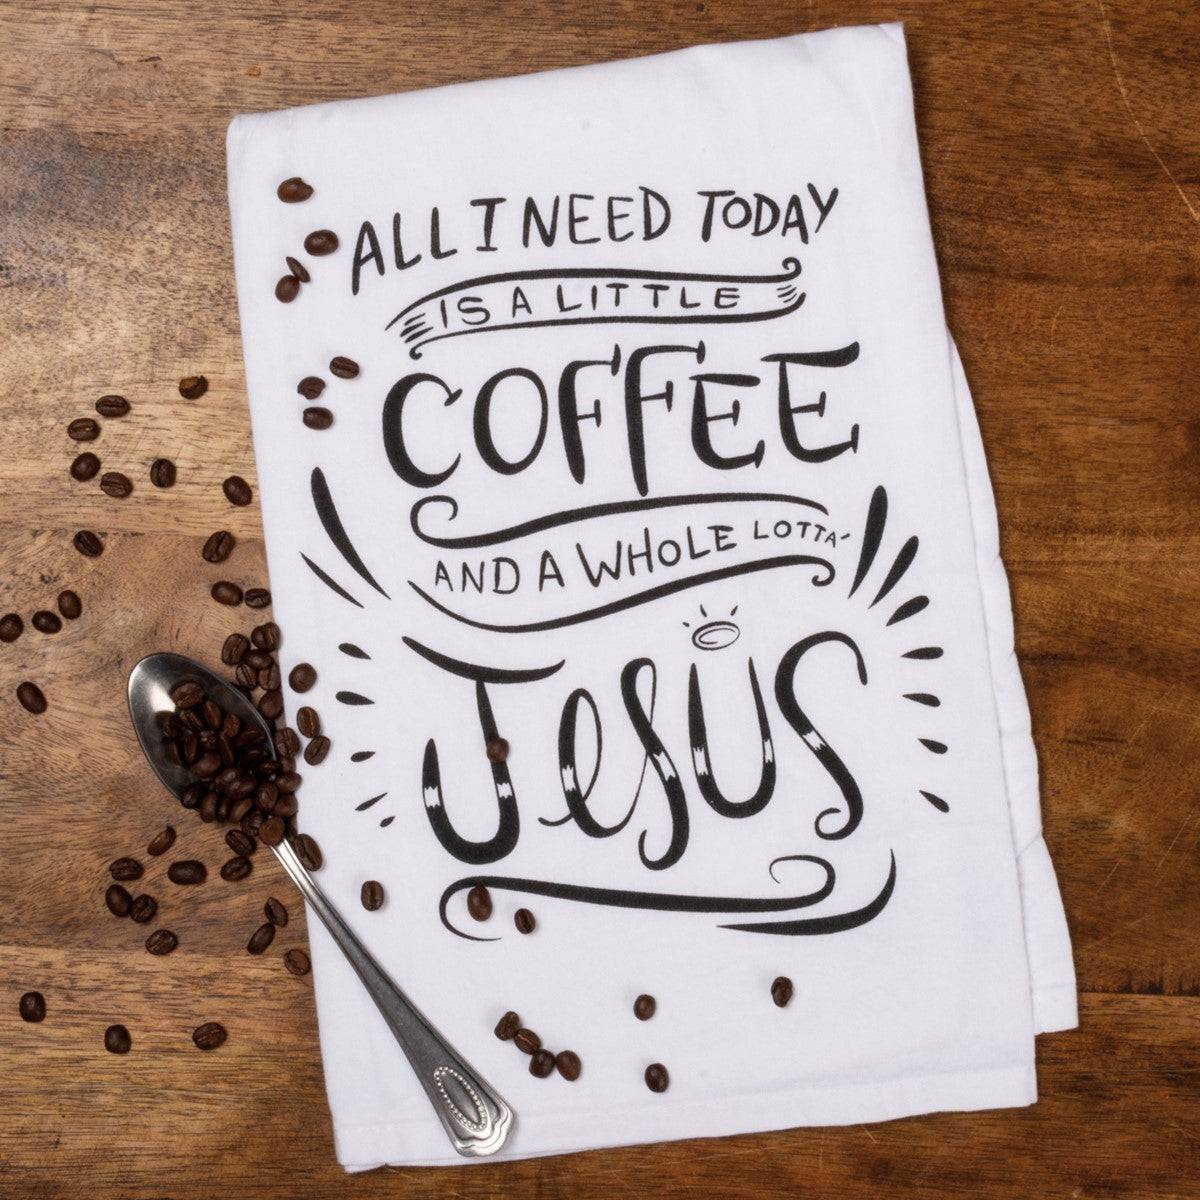 ALL I NEED TODAY
IS A LITTLE
COFFEE
AND A WHOLE LOTTA
JesuS